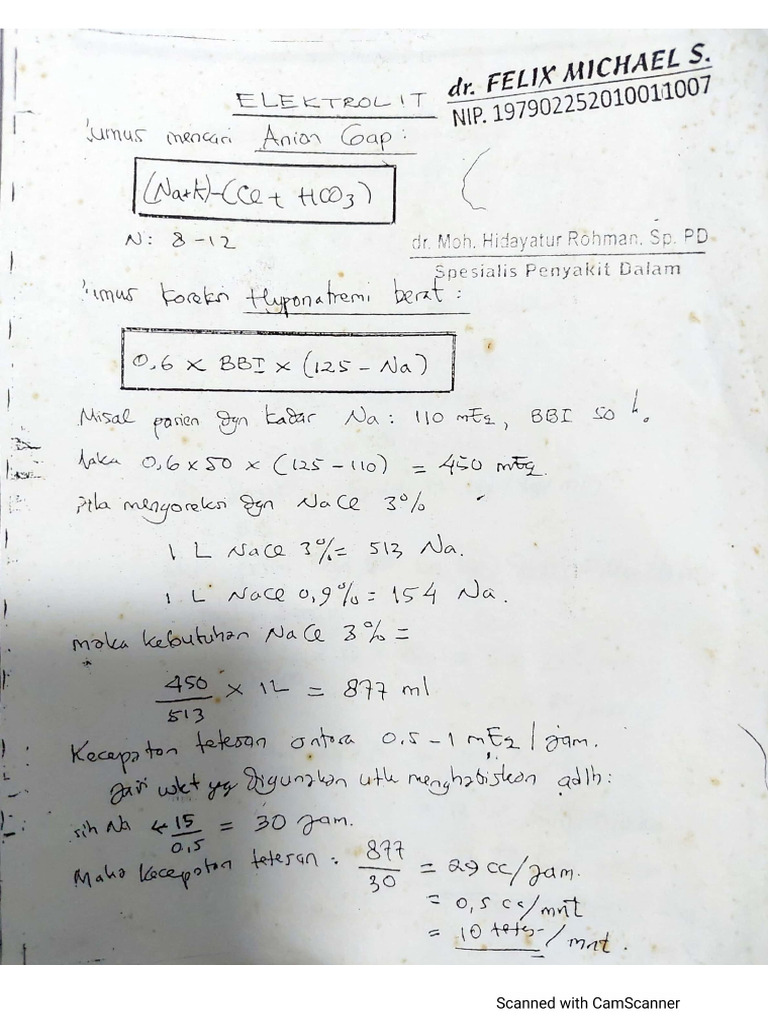 dr. FELIX MICHAEL S.
NIP. 197902252010011007
ELEKTROLIT
umus mencari Anion Gap :
(Na+K)-(Cl + HCO3)
N : 8 - 12
dr. Moh. Hidayatur Rohman, Sp. PD
Spesialis Penyakit Dalam
umus Koreksi Hyponatremi berat :
0,6 x BBI x (125 - Na)
Misal pasien dgn kadar Na : 110 mEq, BBI 50
0,6 x 50 x (125 - 110) = 450 mEq.
mengoreksi dgn NaCl 3%
1 L NaCl 3% = 513 Na.
1 L NaCl 0,9% = 154 Na.
maka kebutuhan NaCl 3% =
450/513 x 1L = 877 ml
Kecepatan tetesan antara 0.5 - 1 mEq / jam.
Jari wkt yg digunakan utk menghabiskan adlh :
sih Na ← 15/0,5 = 30 jam.
Maka kecepatan tetesan : 877/30 = 29 cc/jam.
= 0,5 cc/mnt
= 10 tetes/mnt.
Scanned with CamScanner